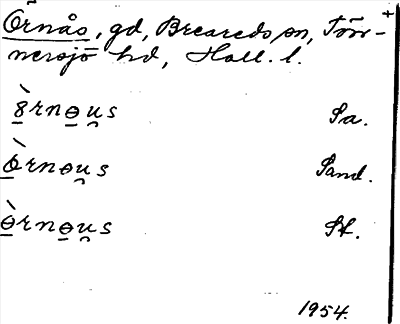 Örnås, gd, Breareds sn, Tönnersjö hd, Hall. l.
+
ȣ̀rnɵu̯s Sa.
ɵ̀rnɵu̯s Sand.
ɵ̀rnɵu̯s St.
1954.